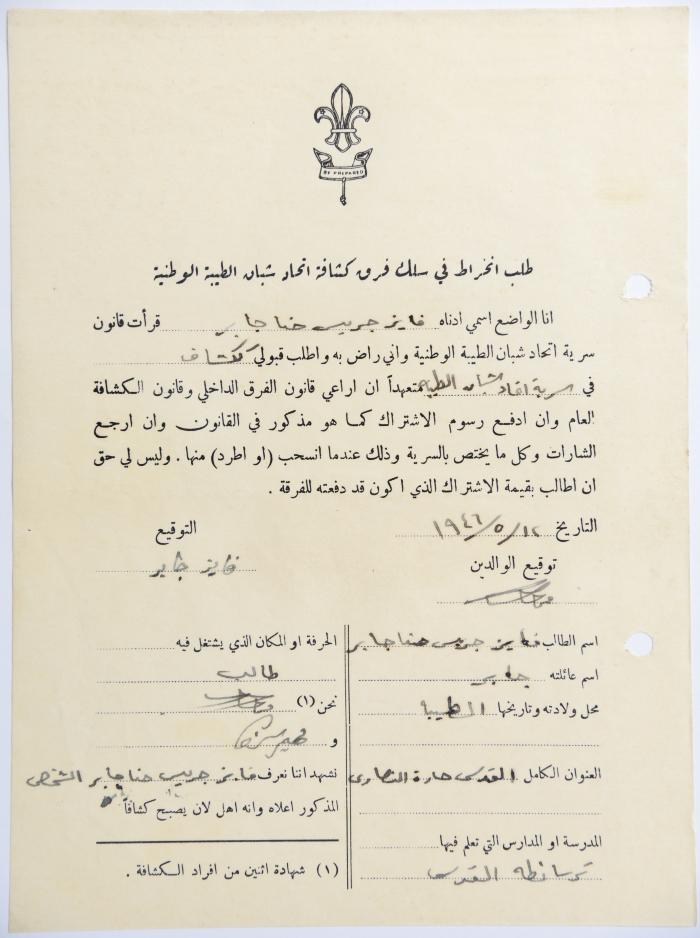 BE PREPARED
طلب انخراط في سلك فرق كشافة اتحاد شبان الطيبة الوطنية
انا الواضع اسمي ادناه فايز جريس حنا جابر قرأت قانون
سرية اتحاد شبان الطيبة الوطنية واني راض به واطلب قبولي ككشاف
في سرية اتحاد شبان الطيبة متعهداً ان اراعي قانون الفرق الداخلي وقانون الكشافة
العام وان ادفع رسوم الاشتراك كما هو مذكور في القانون وان ارجع
الشارات وكل ما يختص بالسرية وذلك عندما انسحب (او اطرد) منها . وليس لي حق
ان اطالب بقيمة الاشتراك الذي اكون قد دفعته للفرقة .
التاريخ ١٩٤٦/٥/١٢ التوقيع
توقيع الوالدين فايز جابر
اسم الطالب فايز جريس حنا جابر
اسم عائلته جابر
محل ولادته وتاريخها الطيبة
العنوان الكامل القدس حارة النصارى
المدرسة او المدارس التي تعلم فيها
تراسانطة القدس
الحرفة او المكان الذي يشتغل فيه
طالب
نحن (١)
و
نشهد اننا نعرف فايز جريس حنا جابر الشخص
المذكور اعلاه وانه اهل لان يصبح كشافاً
(١) شهادة اثنين من افراد الكشافة .